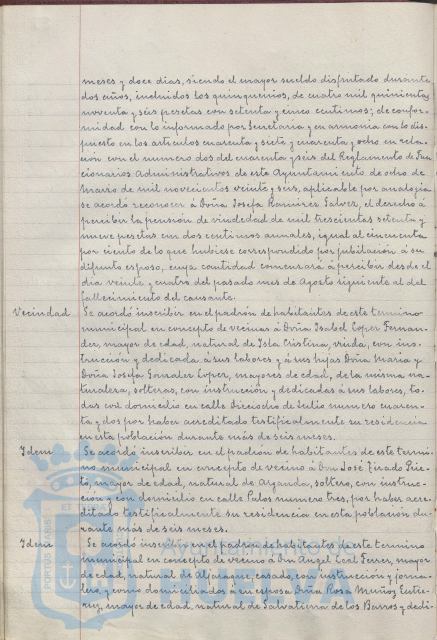 meses y doce dias, siendo el mayor sueldo disfrutado durante
dos años, incluidos los quinquenios, de cuatro mil quinientas
noventa y seis pesetas con setenta y cinco centimos; de confor-
midad con lo informado por Secretaria y en armonia con lo dis-
puesto en los articulos cuarenta y siete y cuarenta y ocho en rela-
ción con el numero dos del cuarenta y seis del Reglamento de Fun-
cionarios Administrativos de este Ayuntamiento de ocho de
Marzo de mil novecientos veinte y seis, aplicable por analogia
se acordó reconocer á Doña Josefa Ramirez Galvez, el derecho á
percibir la pensión de viudedad de mil trescientas setenta y
nueve pesetas con dos centimos anuales, igual al cincuenta
por ciento de lo que hubiese correspondido por jubilación á su
difunto esposo, cuya cantidad comenzará á percibir desde el
dia veinte y cuatro del pasado mes de Agosto siguiente al del
fallecimiento del causante.
Vecindad Se acordó inscribir en el padrón de habitantes de este termino
municipal en concepto de vecinas á Doña Isabel Lopez Fernan-
dez, mayor de edad, natural de Isla Cristina, viuda, con ins-
trucción y dedicada á sus labores y á sus hijas Doña Maria y
Doña Josefa Gonzalez Lopez, mayores de edad, de la misma na-
turaleza, solteras, con instrucción y dedicadas á sus labores, to-
das con domicilio en calle Dieciocho de Julio numero cuaren-
ta y dos por haber acreditado testificalmente su residencia
en esta población durante más de seis meses.
Idem Se acordó inscribir en el padrón de habitantes de este termi-
no municipal en concepto de vecino á Don José Tirado Prie-
to, mayor de edad, natural de soltero, con instruc-
ción y con domicilio en calle Palos numero tres, por haber acre-
ditado testificalmente su residencia en esta población du-
rante más de seis meses.
Idem Se acordó inscribir en el padrón de habitantes de este termino
municipal en concepto de vecino á Don Angel Leal Ferrer, mayor
de edad, natural de Aljaraque, casado, con instrucción y jorna-
lero, y como domiciliados á su esposa Doña Rosa Muñoz Gutie-
rrez, mayor de edad, natural de Salvatierra de los Barros y dedi-
Ayuntamiento de
HUELVA